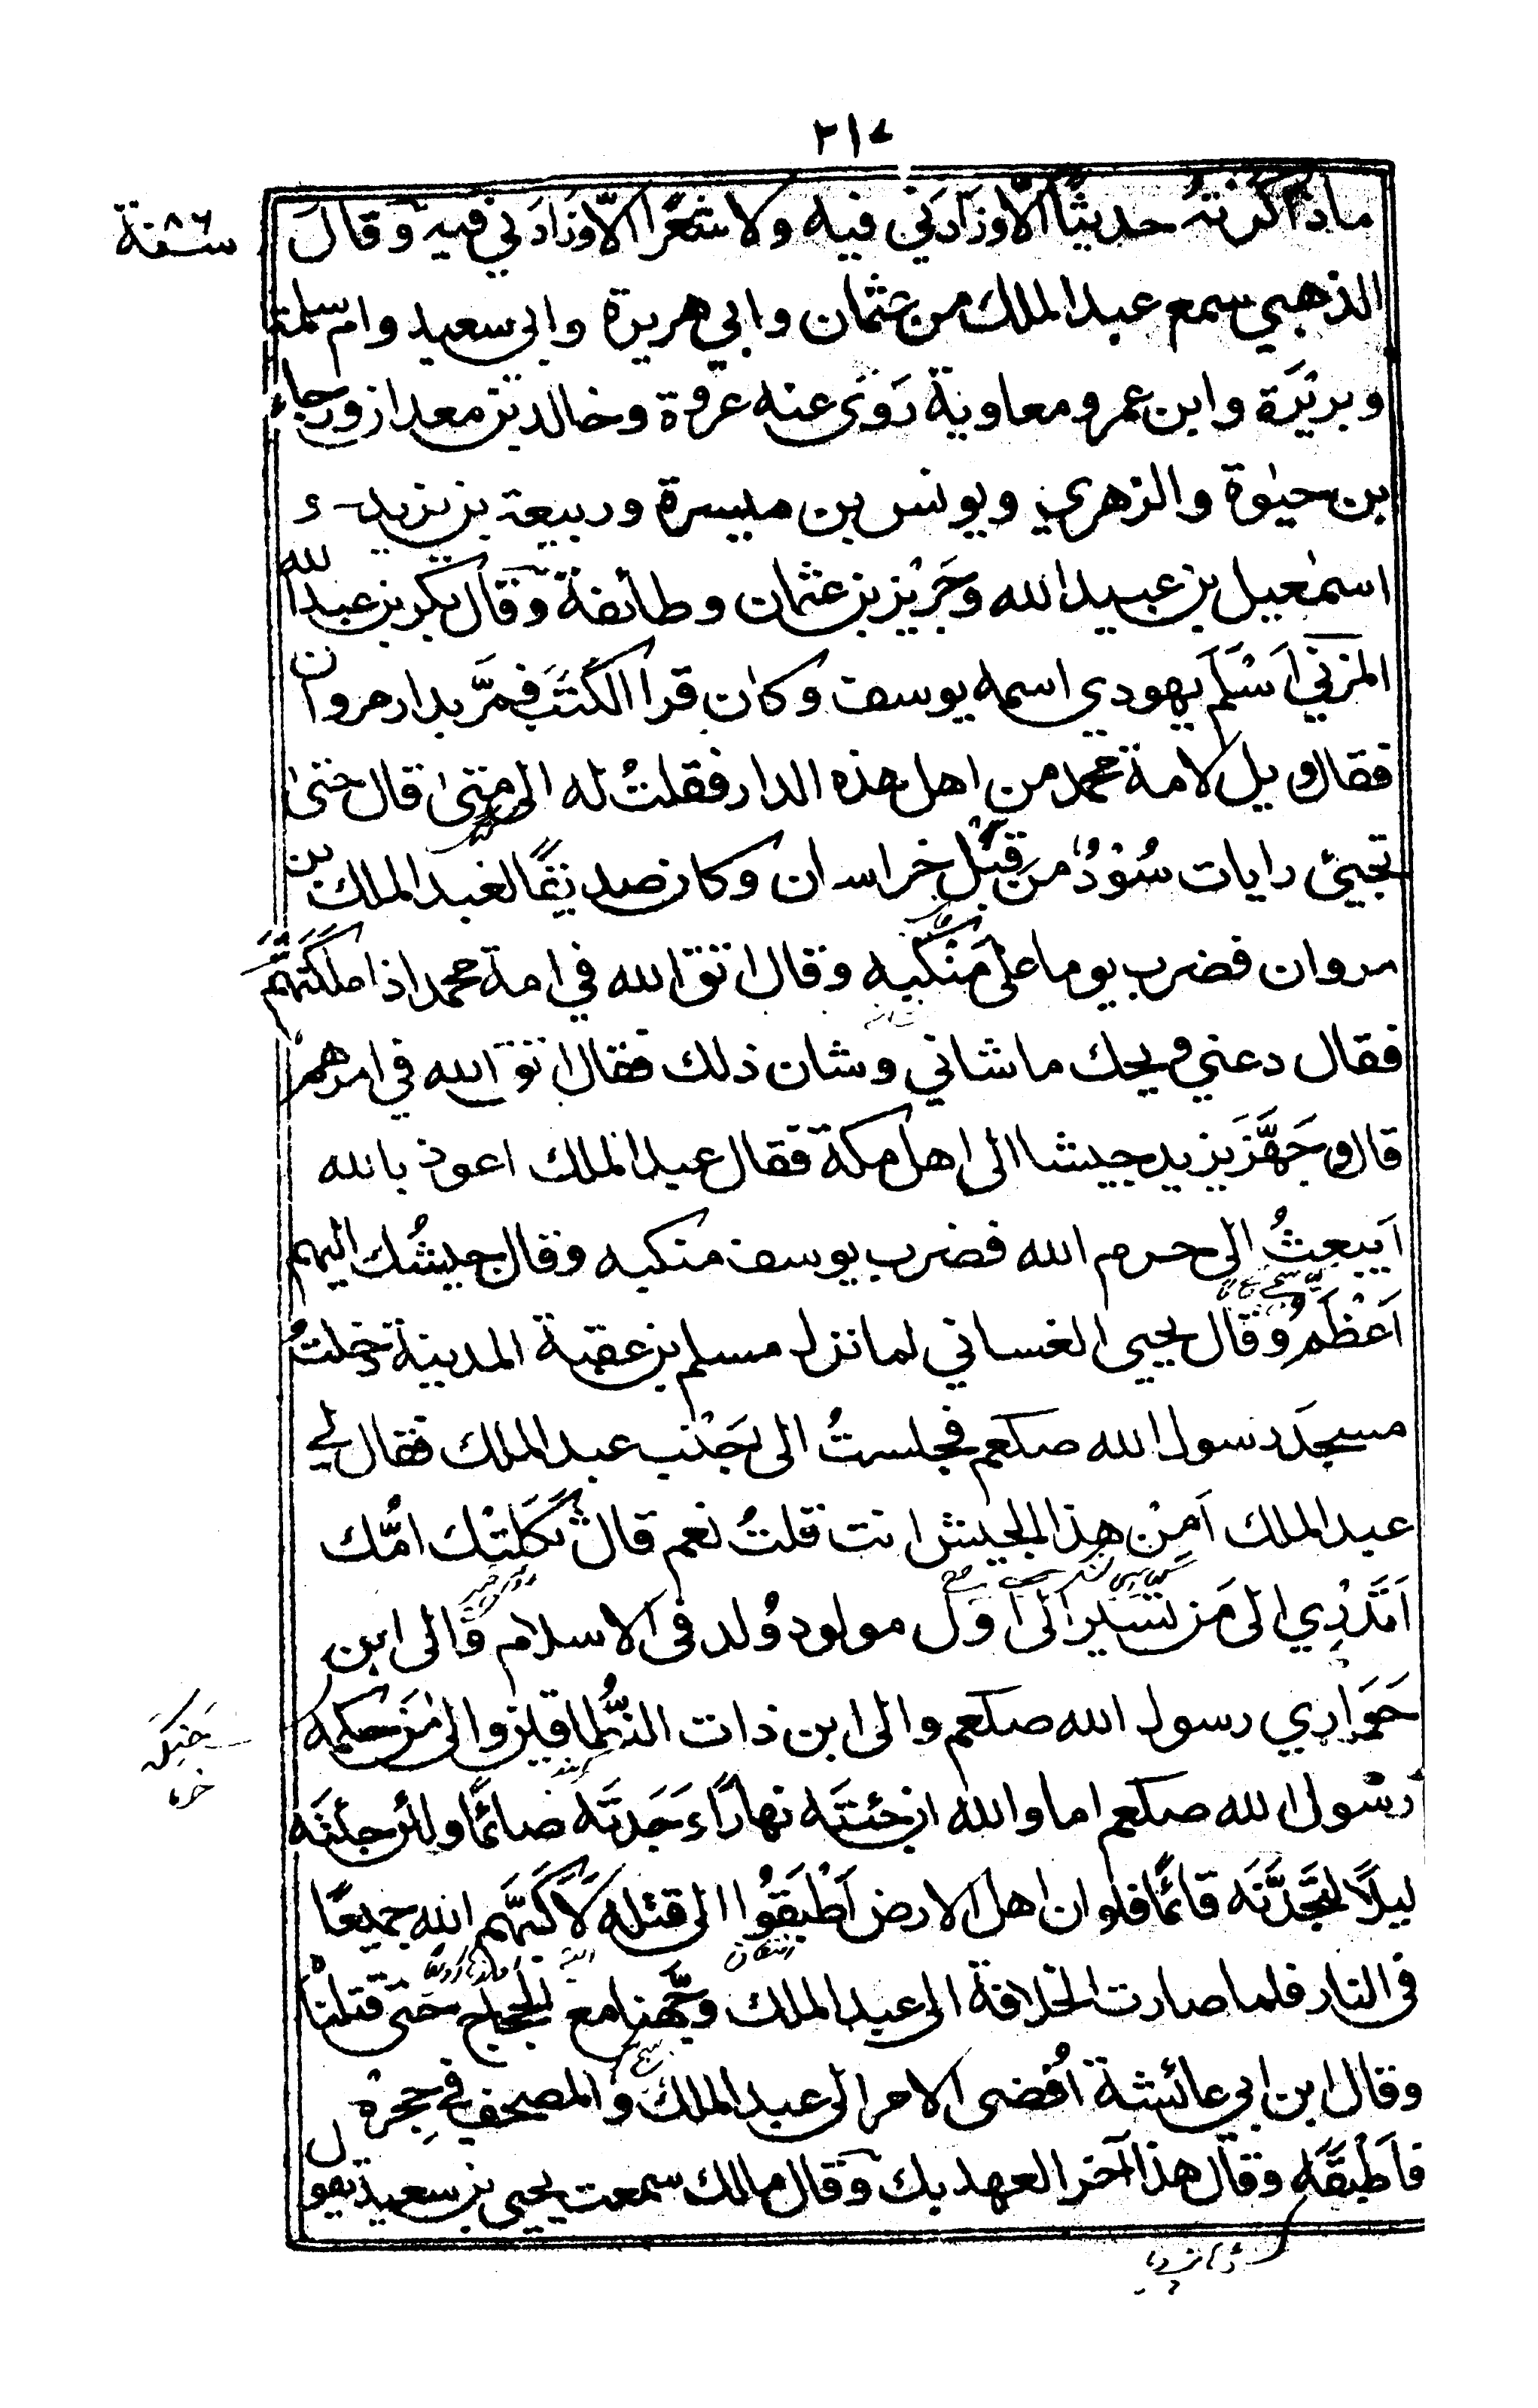 ٢١٧
سنة ٨٦
ماذاكرته حديثًا الّا وزادَني فيه ولا شعرًا الّا وزادَني فيه وقالَ
الذهبي سمع عبد الملك من عثمان وابي هريرة وابي سعيد وام سلمة
وبريْرَة وابن عمر ومعاوية رَوَى عنه عروة وخالد بن معدان ورجاء
بن حيٰوة والزهري ويونس بن ميسرة وربيعة بن يزيد و
اسمٰعيل بن عبيد الله وجَرِيْز بن عثمان وطائفة وقال بكر بن عبد الله
المزني اَسْلَمَ يهودي اسمه يوسف وكان قرا الكُتَبَ فمَرَّ بدار مروان
فقال ويل لامة محمد من اهل هذه الدار فقلتُ له الى متىٰ قال حتىٰ
تجيئ رايات سُوْدٌ من قِبَل خراسان وكان صديقًا لعبد الملك بن
مروان فضرب يوما على مَنْكبه وقال اتق الله في امة محمد اذا ملكتَهُم
فقال دعني ويحك ما شاني وشان ذلك فقال اتق الله في امرهم
قال وجَهَّزَ يزيد جيشا الى اهل مكة فقال عبد الملك اعوذ بالله
اَيبعثُ الى حرم الله فضرب يوسف منكبه وقال جيشُك اليهم
اَعْظَمُ وقال يحيى الغساني لما نزل مسلم بن عقبة المدينة دخلتُ
مسجدَ رسول الله صلعم فجلستُ الى جَنْب عبد الملك فقال لي
عبد الملك اَمِنْ هذا الجيش انت قلتُ نعم قال ثَكَلَتْك امُّك
اَتَدْرِي الى مَن تَسيْر الى اَوَّل مولود وُلد فى الاسلام والى ابن
حَوَاري رسول الله صلعم والى ابن ذات النِّطاقين والى مَن حنكه
رسُول الله صلعم اما والله ان جئتَه نهارًا وَجَدتَه صائمًا ولئن جئتَه
ليلًا لتَجَدَنَّه قائمًا فلو ان اهل الارض اَطْبَقُوا الى قتله لاَكَبَّهُم الله جميعًا
فى النار فلما صارت الخلافة الى عبد الملك وجَّهنا مع الحجاج حتى قتلناه
وقال ابن ابي عائشة اُفضى الامر الى عبد الملك والمصحف في حِجره
فاَطْبَقَه وقال هذا آخر العهد بك وقال مالك سمعت يحيى بن سعيد يقول